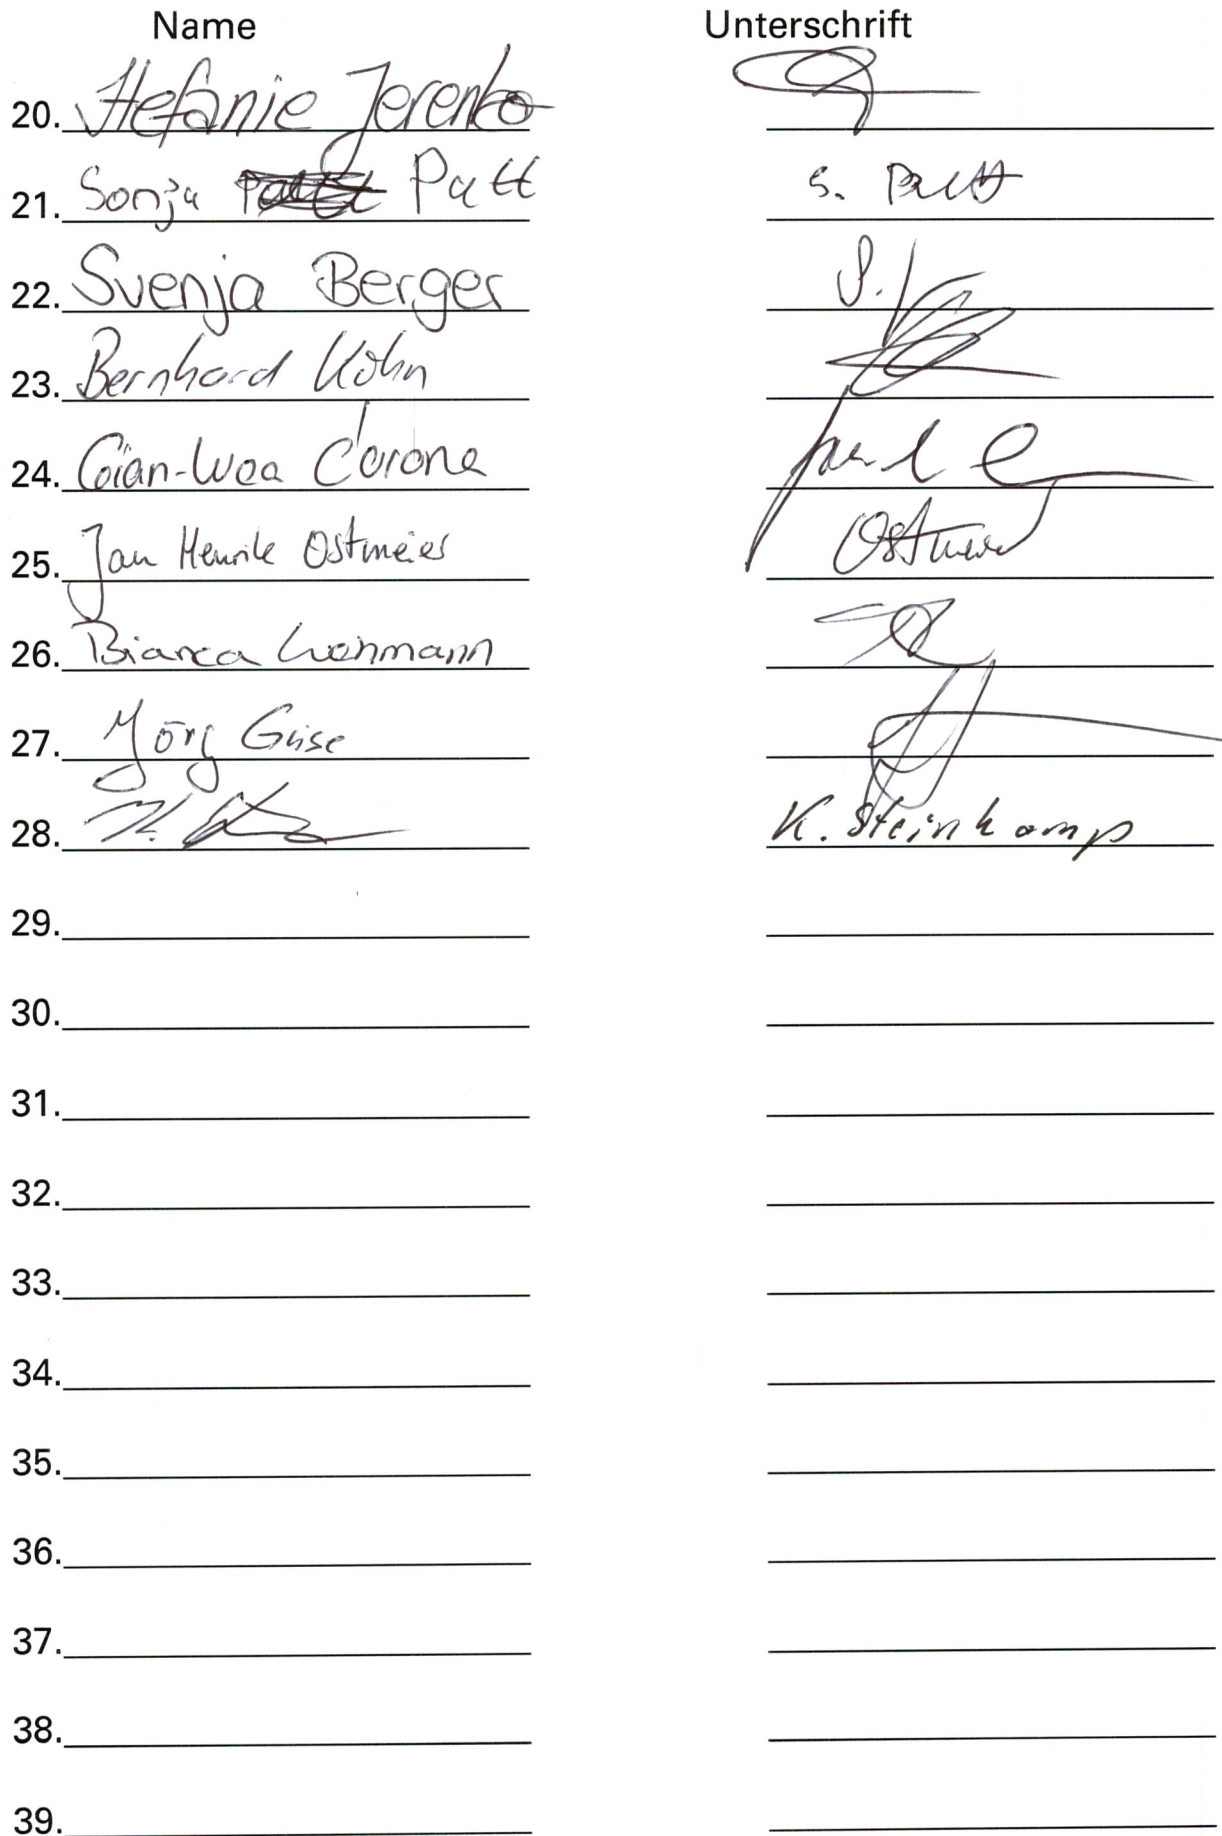 Name Unterschrift
20. Stefanie Jerenko
21. Sonja Patt S. Patt
22. Svenja Berger S.
23. Bernhard Köhn
24. Gian-Luca Corona
25. Jan Henrik Ostmeier Ostmeier
26. Bianca Wehmann
27. Jörg Guse
28. K. Steinkamp
29.
30.
31.
32.
33.
34.
35.
36.
37.
38.
39.